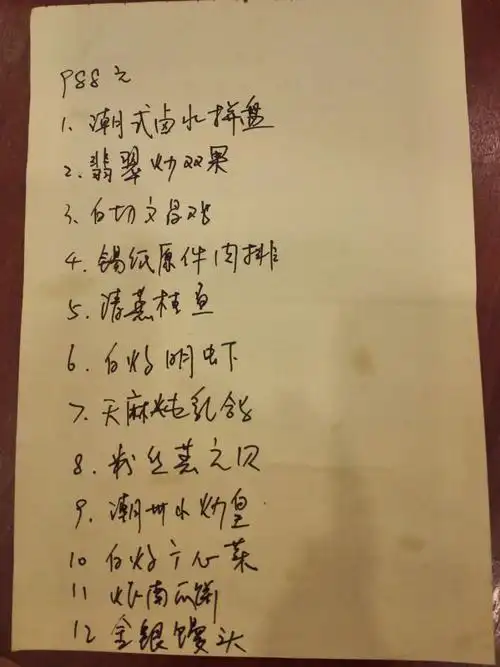 988元
1. 潮式卤水拼盘
2. 翡翠炒双果
3. 白切文昌鸡
4. 锡纸原件肉排
5. 清蒸桂鱼
6. 白灼明虾
7. 天麻炖乳鸽
8. 粉丝蒸元贝
9. 潮州小炒皇
10 白灼广心菜
11 烙南瓜饼
12 金银馒头